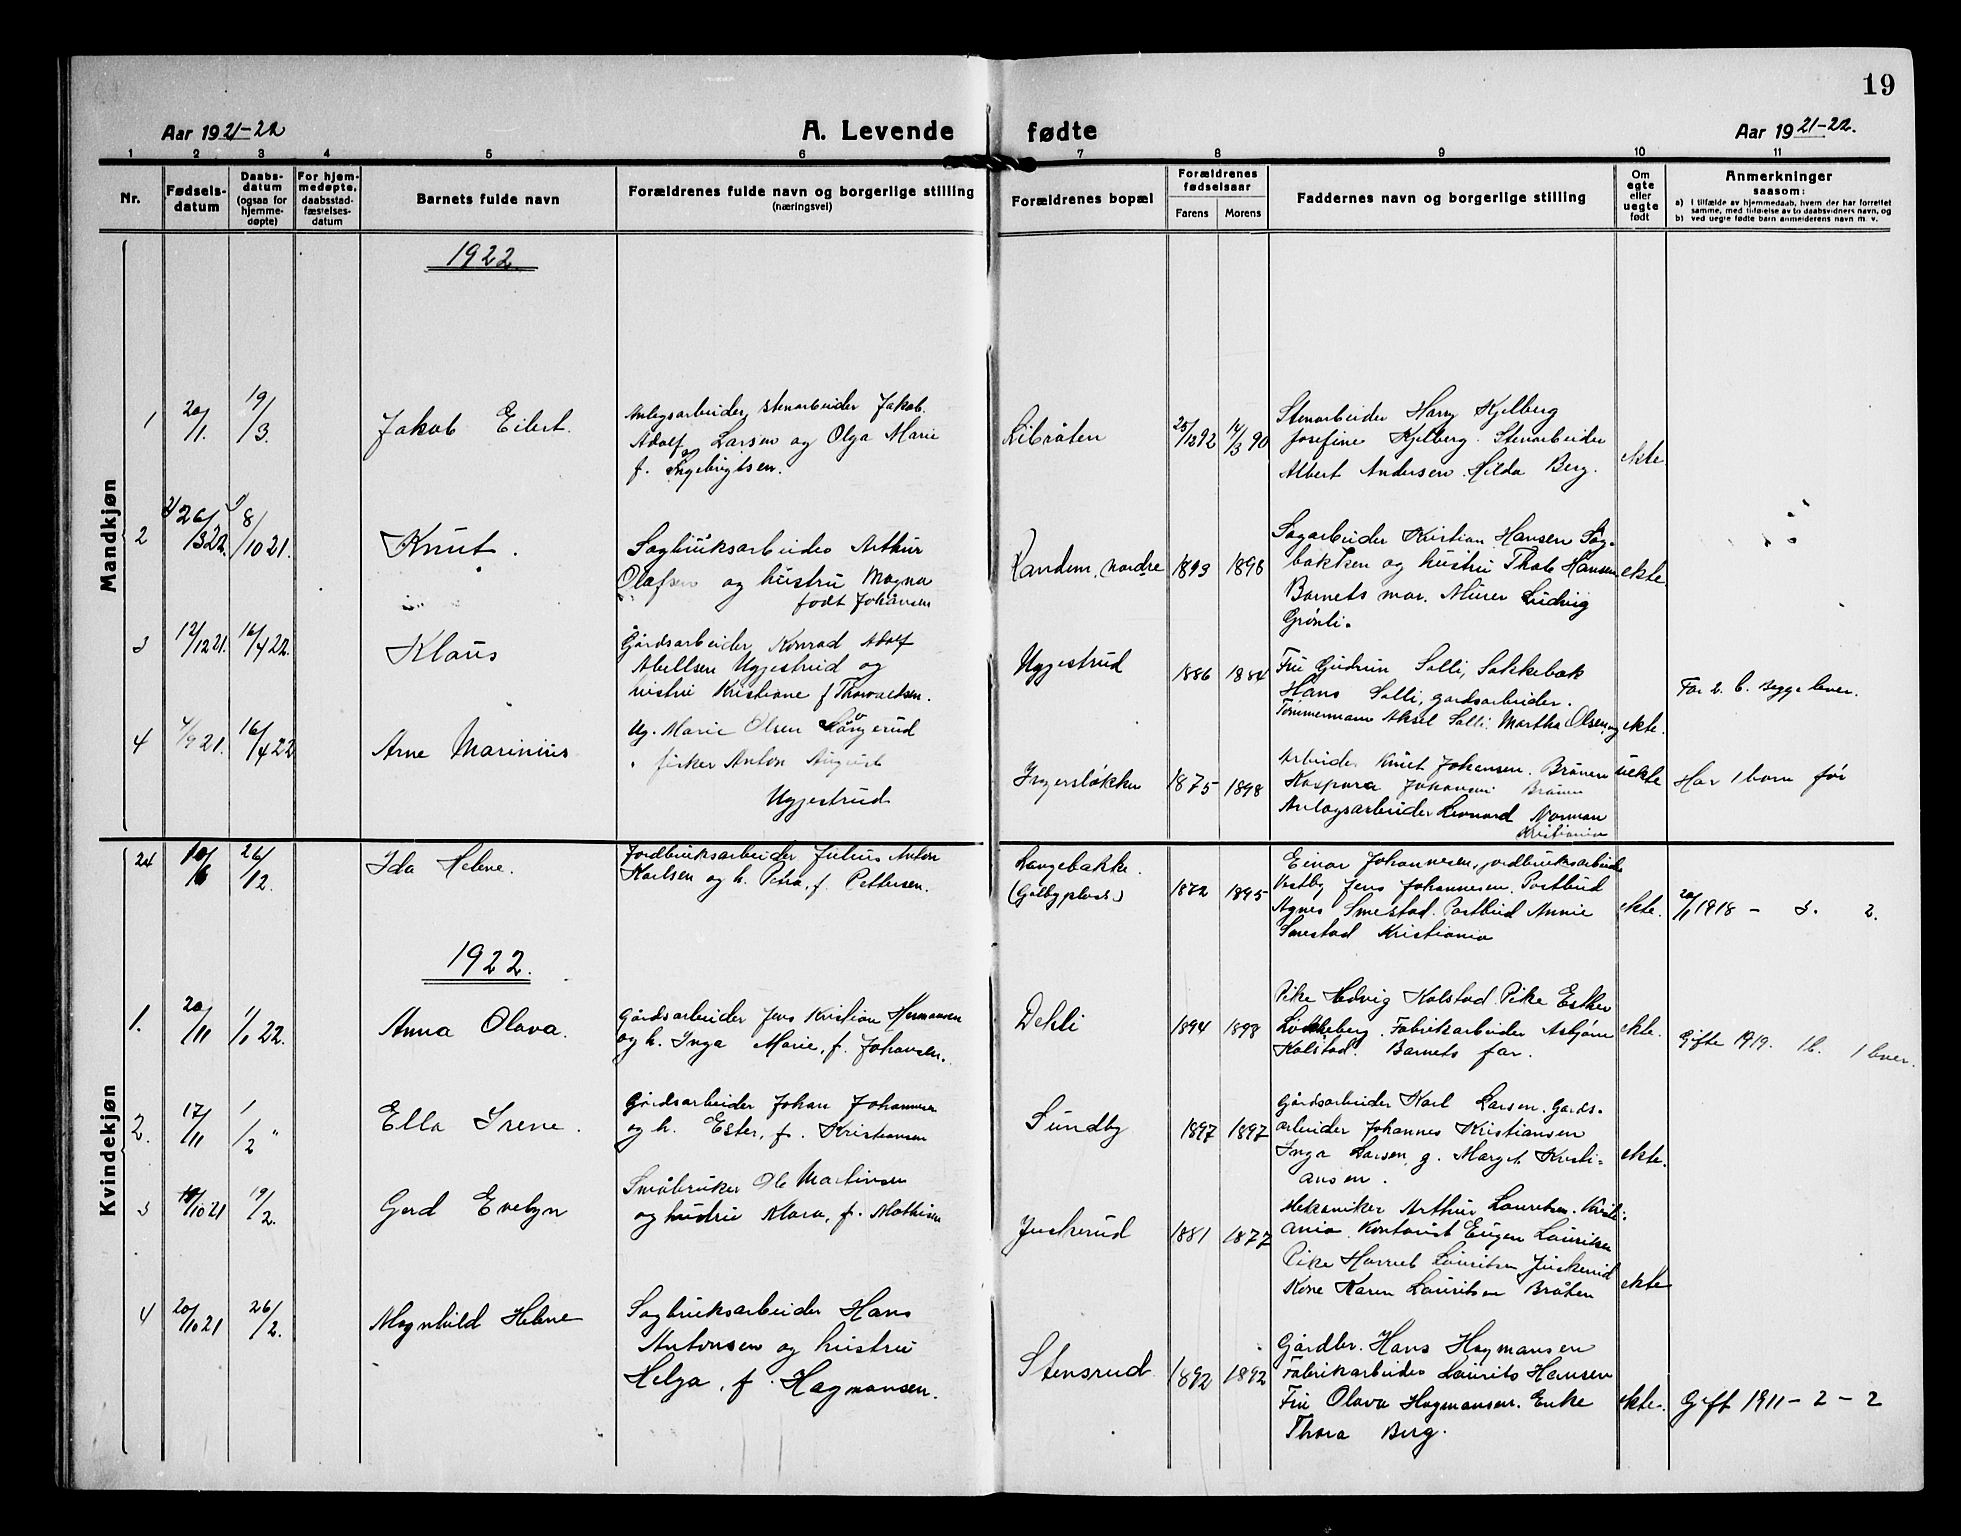 19
Aar 1921-22
A. Levende fødte
Aar 1921-22.
1 2 3 4 5 6 7 8 9 10 11
Nr.
Fødsels-
datum
Daabs-
datum
(ogsaa for
hjemme-
døpte)
For hjem-
medøpte,
daabsstad-
fæstelses-
datum
Barnets fulde navn
Forældrenes fulde navn og borgerlige stilling
(næringsvei)
Forældrenes bopæl
Forældrenes
fødselsaar
Farens Morens
Faddernes navn og borgerlige stilling
Om
egte
eller
uegte
født
Anmerkninger
saasom:
a) I tilfælde av hjemmedaab, hvem der har forrettet
samme, med tilføielse av to daabsvidners navn, og
b) ved uegte fødte barn anmelderens navn m. v.
Mandkjøn
1922
1 20/1. 19/3 Jakob Eilert.
Anlegsarbeider, stenarbeider Jakob
Adolf Larsen og Olga Marie
f. Ingebrigtsen.
Libråten
25/12 92 14/3 90
Stenarbeider Harry Kjelberg
Josefine Kjelberg. Stenarbeider
Albert Andersen. Hilda Berg.
ekte
2 26/3 22. 8/10 21. Knut.
Sagbruksarbeider Arthur
Olafsen og hustru Magna
født Johansen
Randem, nordre
1893 1898
Sagarbeider Kristian Hansen Sag-
bakken og hustru Thale Hansen
Barnets mor. Murer Ludvig
Grønli.
ekte
3 12/12 21. 16/4 22. Klaus
Gårdsarbeider Konrad Adolf
Abellsen Uggestrud og
hustru Kristiane f Thorvaldsen.
Uggestrud
1886 1884
Fru Gudrun Solli, Sokkebæk
Hans Solli, gardsarbeider.
Tømmermann Aksel Solli. Martha Olsen
ekte.
For 2. b. Begge lever.
4 4/9 21. 16/4 22 Arne Marinius
Ug. Marie Olsen Langerud
fisker Anton August
Uggestrud
Ingersløkken
1875 1898
Arbeider Knut Johansen. Brånen
Kaspara Johansen Brånen
Anlagsarbeider Leonard Norman
Kristiania
uekte
Har 1 barn før
Kvindekjøn
24 10/6 26/12. Ida Helene.
Jordbruksarbeider Julius Anton
Karlsen og h. Petra, f. Pettersen.
Langebakke.
(Galbyplads.)
1872 1895
Einar Johannesen, jordbruksarbeider
Vestby Jens Johannesen, Postbud
Agnes Smestad. Postbud Annie
Smestad Kristiania
ekte.
20/1 1918 - 3. 2.
1922.
1. 20/11 1/1 22. Anna Olava.
Gårdsarbeider Jens Kristian Hermansen
og h. Inga Marie, f. Johansen.
Dehli
1894 1898
Pike Hedvig Kolstad. Pike Esther
Løkkeberg. Fabrikarbeider Asbjørn
Kolstad. Barnets far.
ekte.
Gifte 1919. 1 b. 1 lever.
2. 17/11 1/2 " Ella Irene.
Gårdsarbeider Johan Johannesen
og h. Ester, f. Kristiansen
Sundby
1897 1897
Gårdsarbeider Karl Larsen. Gards-
arbeider Johannes Kristiansen
Inga Larsen, g. Marget Kristi-
ansen.
ekte.
3 18/10 21 19/2. Gerd Evelyn
Småbruker Ole Martinsen
og hustru Klara, f. Mathisen
Juskerud
1881 1877
Mekaniker Arthur Lauritsen. Kristi-
ania. Kontorist Eugen Lauritsen
Pike Harriet Lauritsen Juskerud
Kone Karen Lauritsen Bråten
ekte
4 20/10 21 26/2. Magnhild Helene
Sagbruksarbeider Hans
Antonsen og hustru
Helga, f. Hagmansen.
Stensrud
1892 1892
Gårdbr. Hans Hagmansen
Fabrikarbeider Laurits Hansen
Fru Olava Hagmansen. Enke
Thora Berg.
ekte.
Gift 1911 - 2 - 2